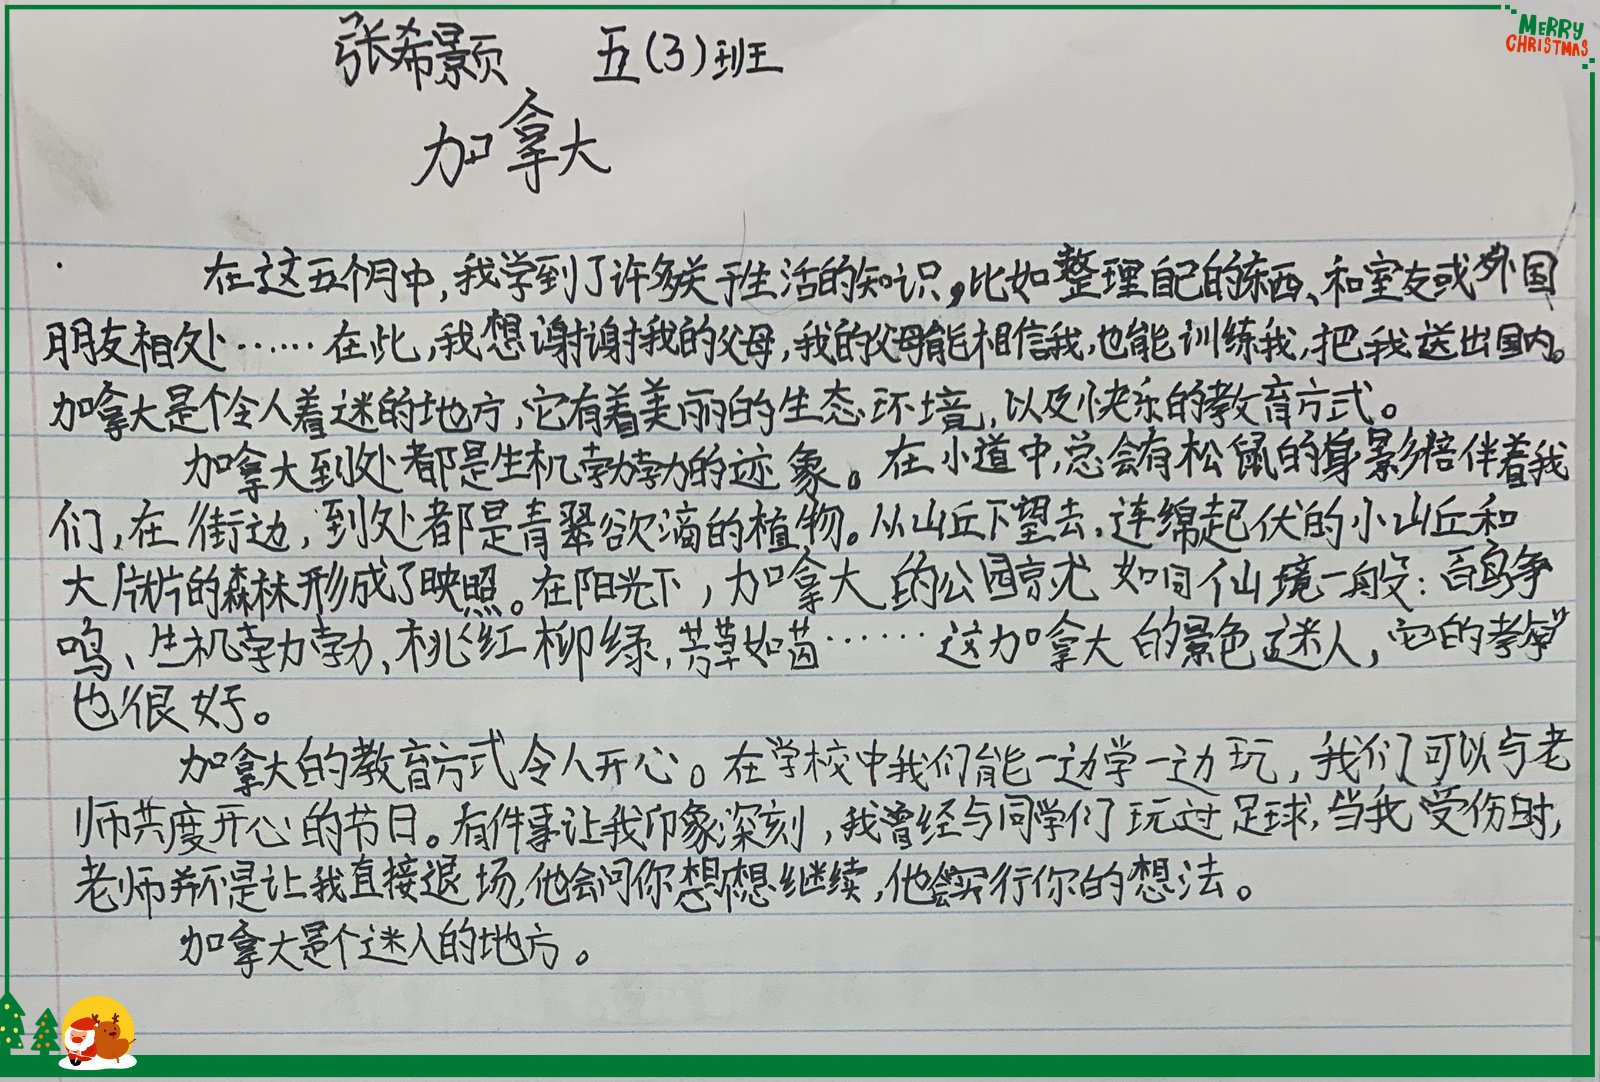 MERRY
CHRISTMAS
张希颢 五(3)班
加拿大
在这五个月中,我学到了许多关于生活的知识,比如整理自己的东西、和室友或外国
朋友相处……在此,我想谢谢我的父母,我的父母能相信我,也能训练我,把我送出国内。
加拿大是个令人着迷的地方,它有着美丽的生态环境,以及快乐的教育方式。
加拿大到处都是生机勃勃的迹象。在小道中,总会有松鼠的身影陪伴着我
们,在街边,到处都是青翠欲滴的植物。从山丘下望去,连绵起伏的小山丘和
大片片的森林形成了映照。在阳光下,加拿大的公园就如同仙境一般:百鸟争
鸣、生机勃勃,桃红柳绿,芳草如茵……这加拿大的景色迷人,它的
也很好。
加拿大的教育方式令人开心。在学校中我们能一边学一边玩,我们可以与老
师共度开心的节日。有件事让我印象深刻,我曾经与同学们玩过足球,当我受伤时,
老师并不是让我直接退场,他会问你想不想继续,他会实行你的想法。
加拿大是个迷人的地方。